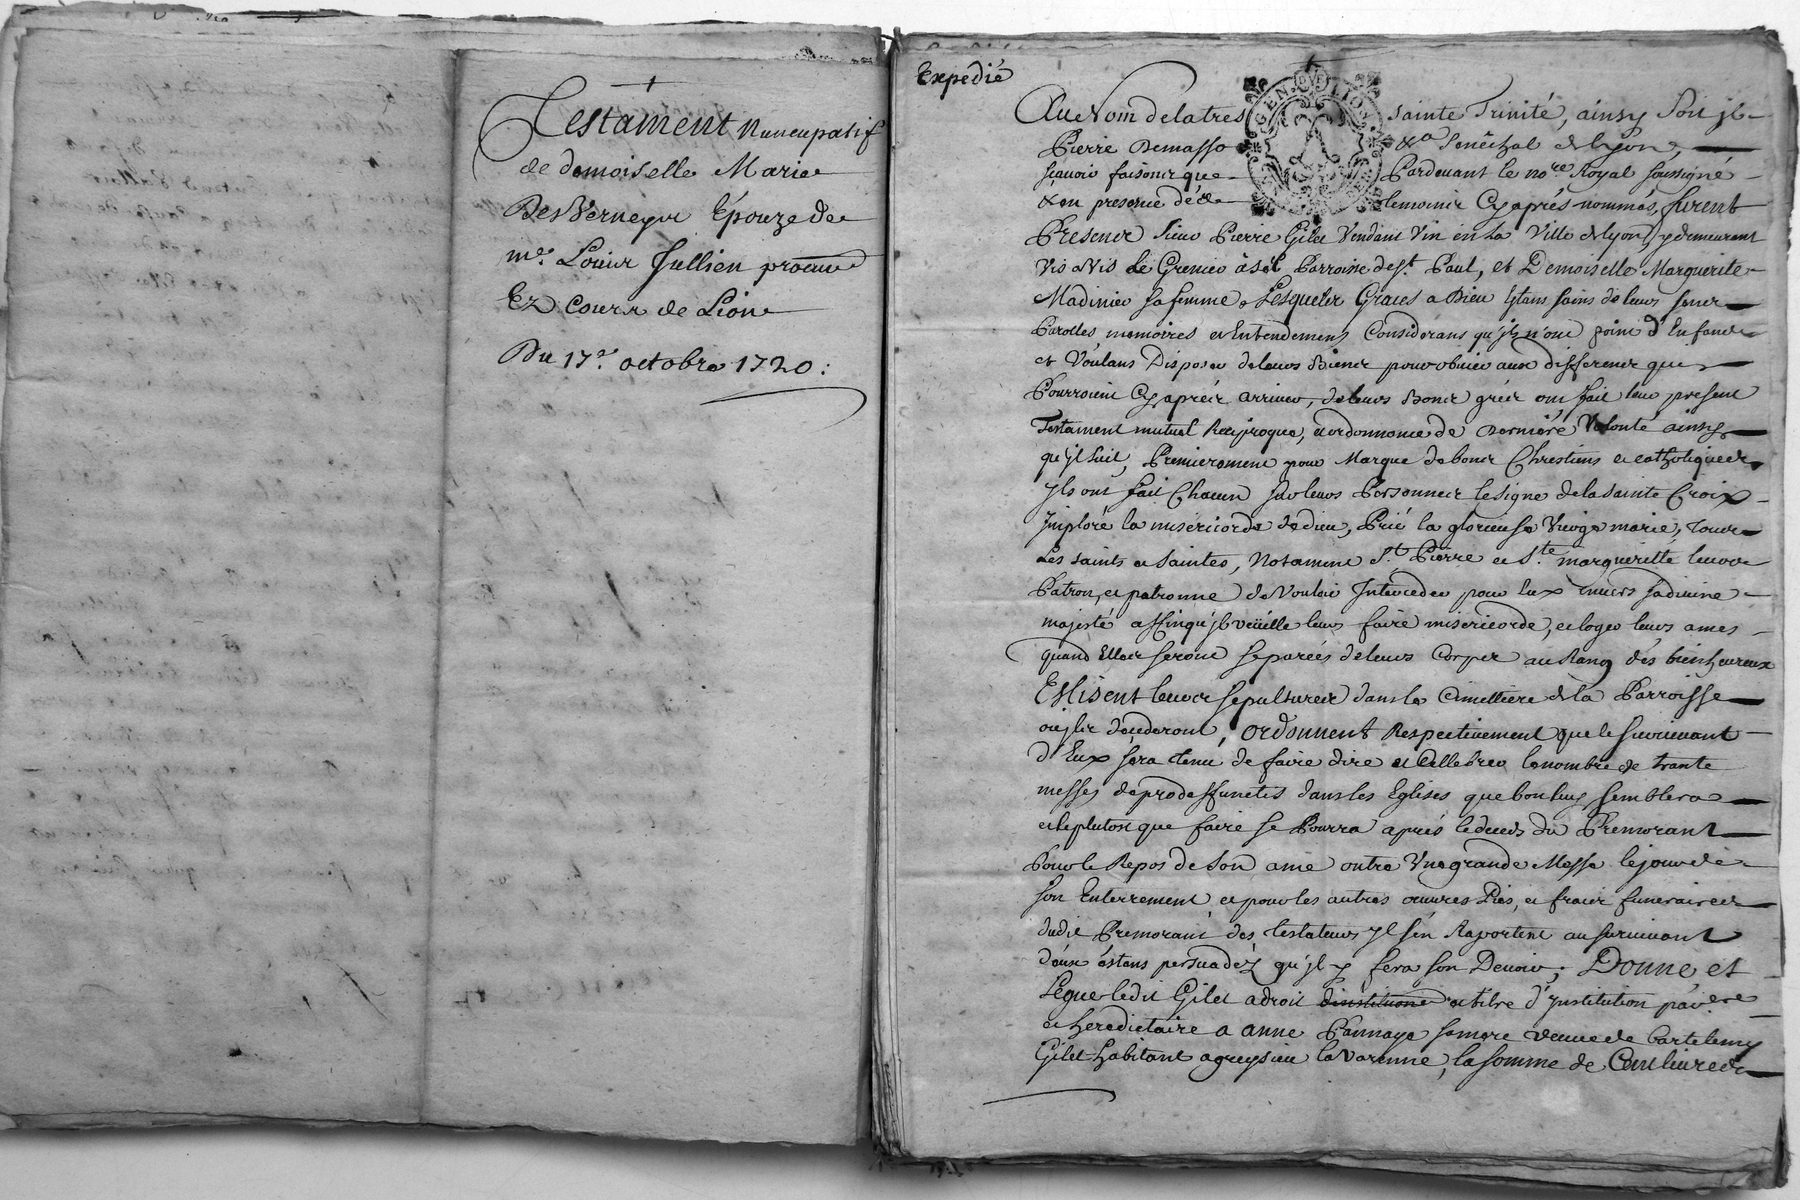 Testament nuncupatif
de demoiselle Marie
DesVerneys Épouze de
me. Louis Jullien procureur
Ez cours de Lion
Du 17e. octobre 1720.
Expedié
GEN. DE LION
Au Nom de la tres sainte Trinité, ainsy soit jl
Pierre Demasso &a Senéchal de lyon,
sçavoir faisons que Pardevant le nore Royal soussigné
& en presence dé&a temoins Cy aprés nommés, furent
Presens sieur Pierre Gilet Vendant Vin en la Ville de lyon, y demeurant
vis a vis le Grenier à sel Parroisse de st. Paul, et Demoiselle Marguerite
Madinier sa femme, Lesquels Graces a Dieu Estans sains de leurs sens
Parolles, memoires et Entendemens Considerans qu'jls n'ont point d'Enfans
et Voulans Disposer de leurs Biens pour obvier aux differens qui
Pourroient Cy aprés arriver, de leurs Bons grés ont fait leur present
Testament mutuel Reciproque, et ordonnance de Derniére Volonté ainsy
qu'jl suit, Premierement pour Marque de bons Chrestiens et catholiques
jls ont fait Chacun sur leurs Personnes le signe de la sainte Croix
Jmploré la misericorde de dieu, Prié la glorieuse Vierge marie, tous
Les saints et saintes, Notament St. Pierre et Ste. marguerite leurs
Patron, et patronne de Vouloir Interceder pour Eux Envers sa divine
majesté affin qu'jl veüille leurs faire misericorde, et loger leurs ames
quand Elles seront separées de leurs Corps au Rang dés bienheureux
Eslisent leurs sepultures dans le Cimettiere de la Parroisse
ou jls decederont, ordonnent Respectivement que le survivant
d'Eux sera tenu de faire dire et Cellebrer le nombre de trante
messes de prodeffunctis dans les Eglises que bon luy semblera
et le plutost que faire se Pourra aprés le decés du Premorant
Pour le Repos de son ame outre Une grande Messe le jour de
son Enterrement, et pour les autres œuvres Pies, et frais funeraires
dudit Premorant des testateurs jl s'en Raportent au survivant
d'eux éstans persuadéz qu'jl y fera son Devoir, Donne et
Legue ledit Gilet a droit d'institution et titre d'Jnstitution parere
et hereditaire a anne Pannaye sa mere veuve de bartelemy
Gilet habitant a greysieu la Varenne, la somme de Cent livres